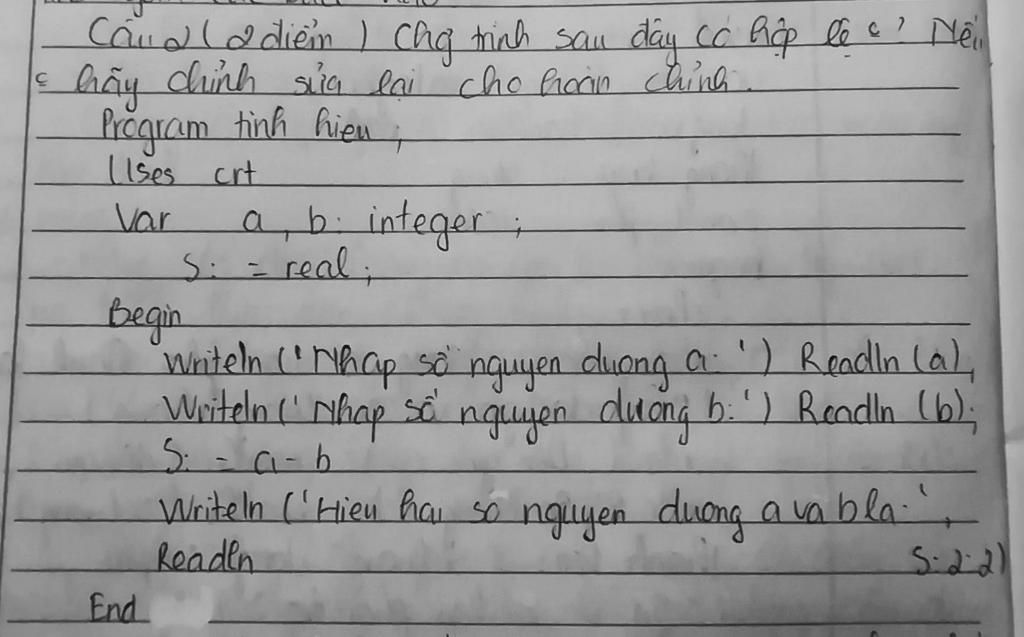 Câu 2 (2 điểm) Chg trình sau đây có hợp lệ c? Nếu
c hãy chỉnh sửa lại cho hoàn chỉnh.
Program tinh hieu;
Uses crt
Var a, b: integer;
S: = real;
Begin
Writeln ('Nhap số nguyen duong a: ') Readln (a),
Writeln (' Nhap số nguyen duong b: ') Readln (b);
S: = a - b
Writeln ('Hieu hai so nguyen duong a va b la: ',
Readln S:2:2)
End